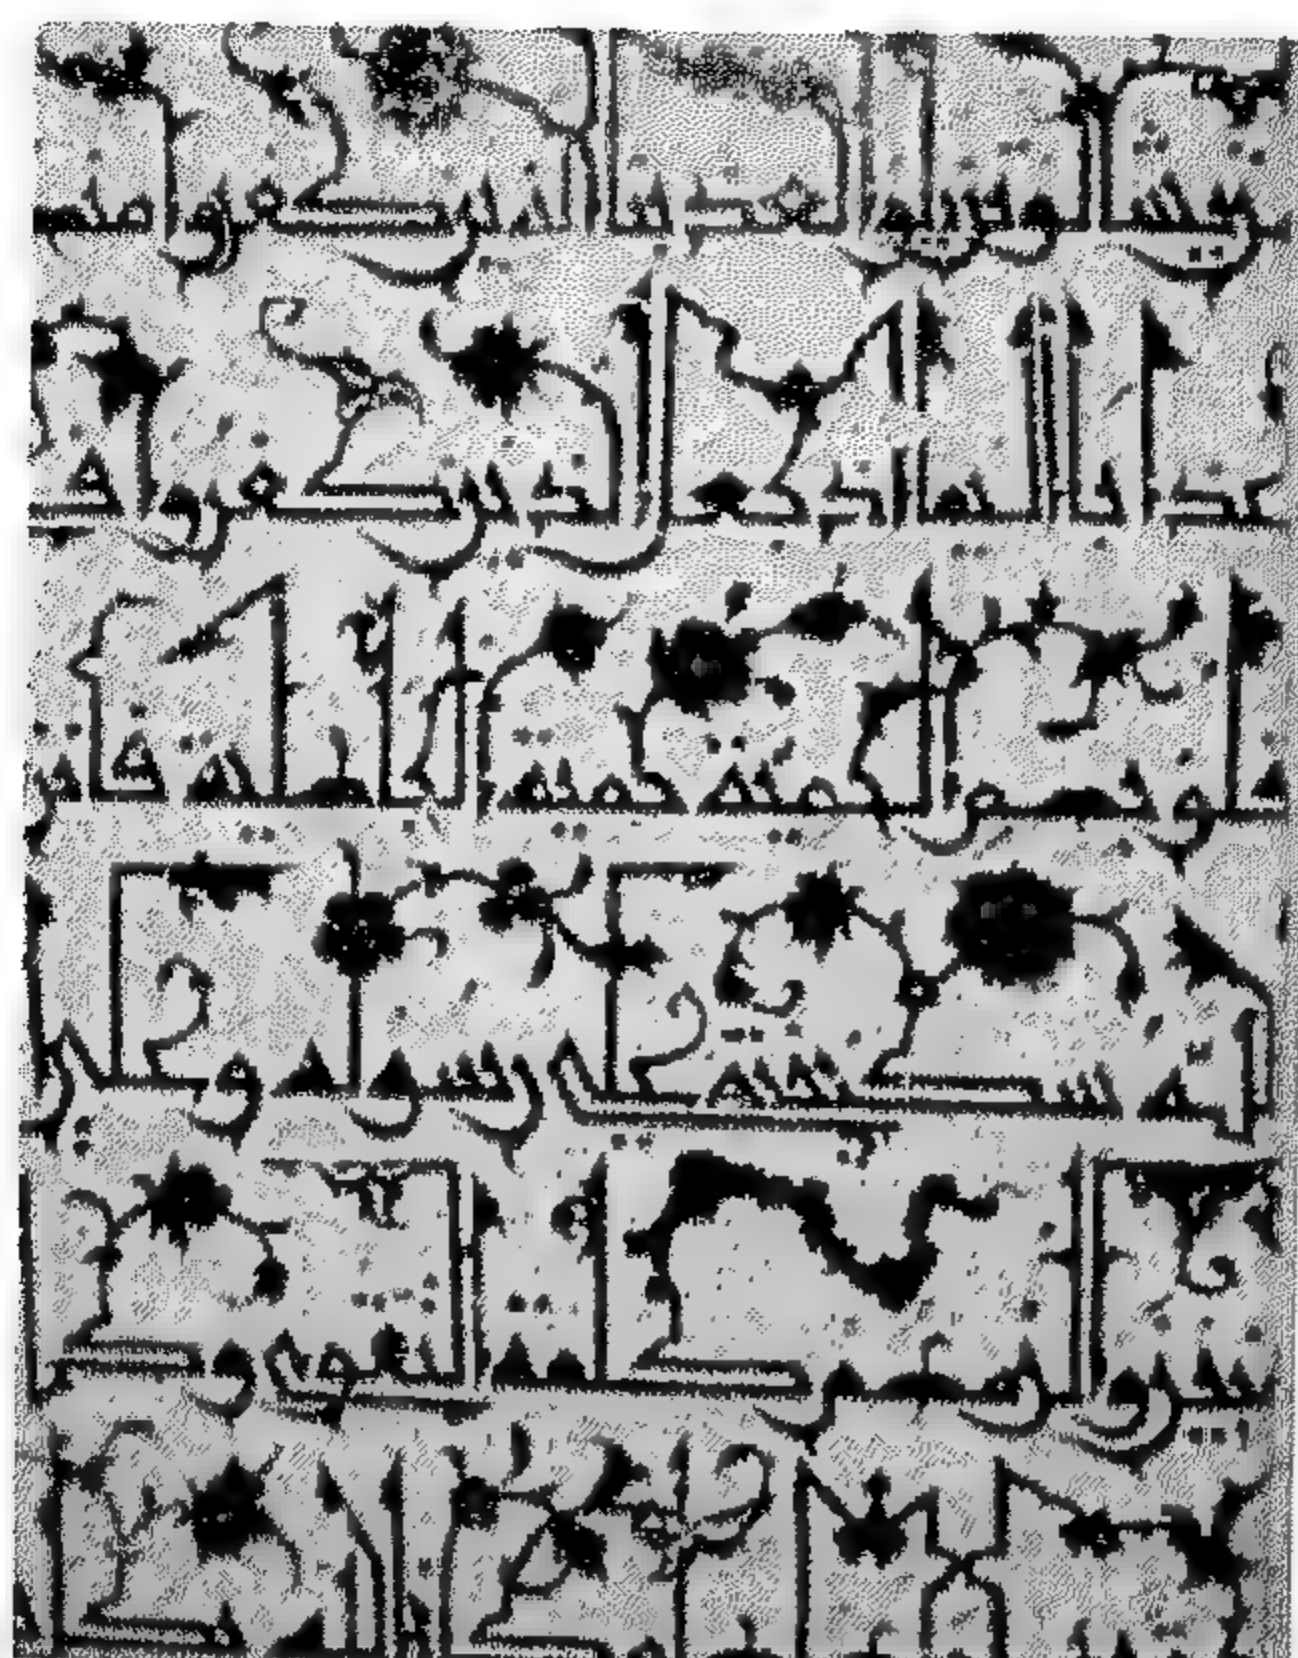 يشا لو تزيلوا لعذبنا الذين كفروا منهم
عذابا اليما اذ جعل الذين كفروا في
قلوبهم الحمية حمية الجاهلية فانز
ل الله سكينته على رسوله وعلى
المؤمنين والزمهم كلمة التقوى وكا